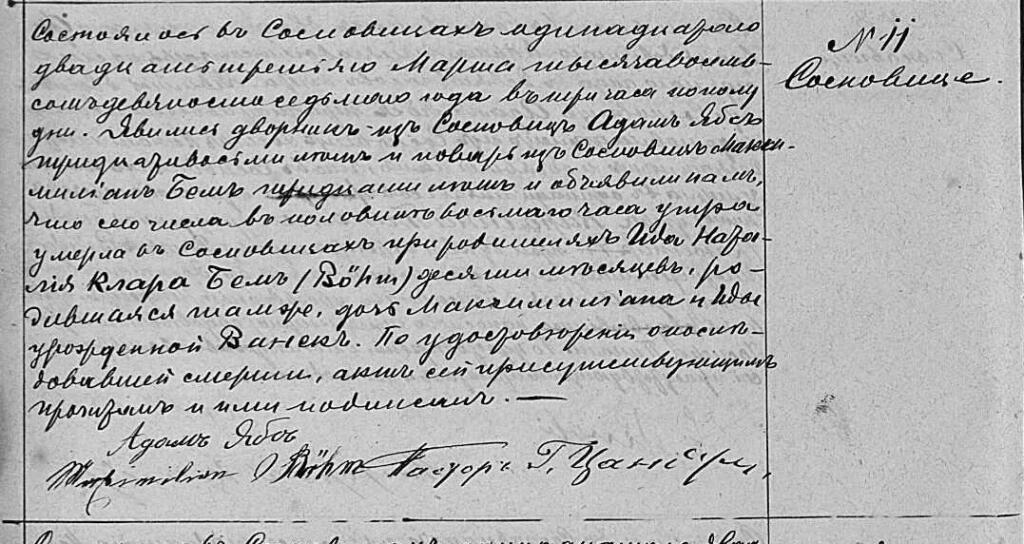 Состоялось въ Сосновицахъ одинадцатаго
двадцать третьяго Марта тысяча восемь-
сотъ девяносто седьмого года въ три часа пополу
дни. Явились дворникъ изъ Сосновицъ Адамъ Ябсъ
тридцативосьми лѣтъ и поваръ изъ Сосновицъ Макси-
миліанъ Бемъ тридцати лѣтъ и объявили намъ,
что сего числа въ половинѣ восьмаго часа утра
умерла въ Сосновицахъ при родителяхъ Ида Ната-
лія Клара Бемъ (Böhm) десяти мѣсяцевъ, ро-
дившаяся тамже, дочь Максимиліана и Иды
урожденной Ванекъ. По удостовѣреніи о послѣ-
довавшей смерти, актъ сей присутствующимъ
прочитанъ и ими подписанъ. —
Адамъ Ябсъ
Maximilian Böhm Пасторъ Г.
N. 11
Сосновице.